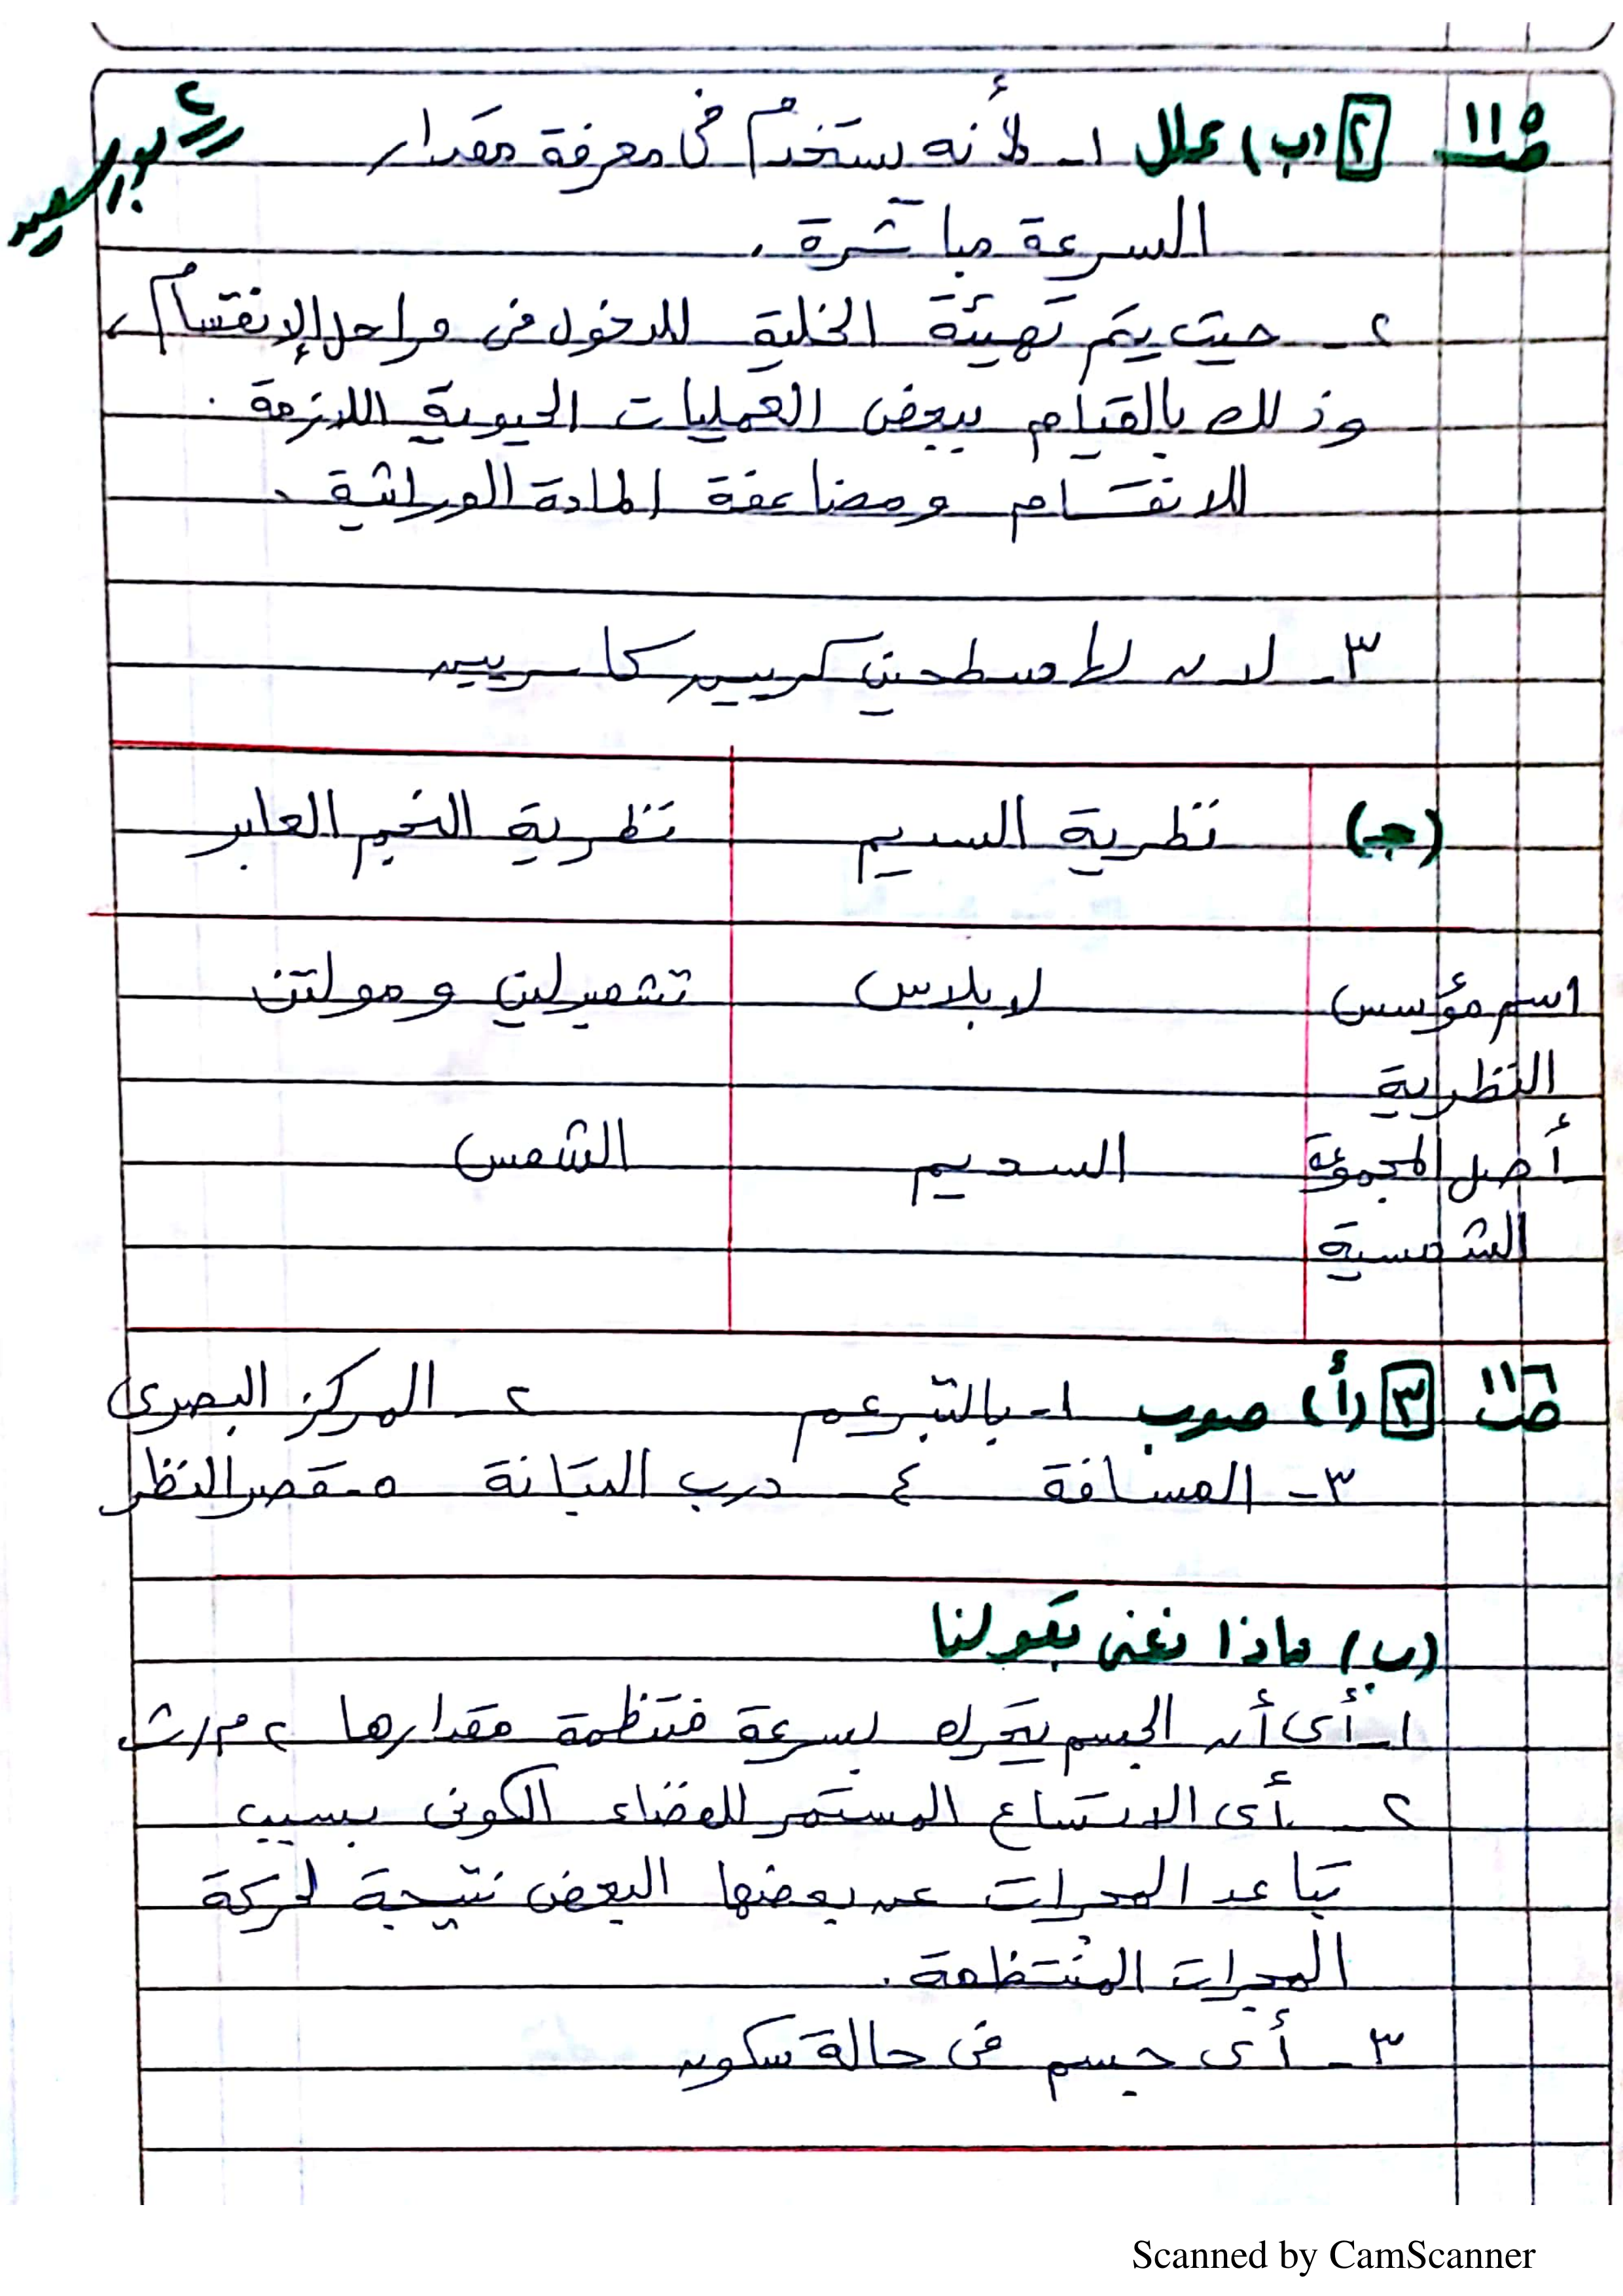 ص ١١٥ ٢ (ب) علل ١- لأنه يستخدم فى معرفة مقدار
بور سعيد
السرعة مباشرة.
٢- حيث يتم تهيئة الخلية للدخول فى مراحل الإنقسام،
وذلك بالقيام ببعض العمليات الحيوية اللازمة
للانقسام ومضاعفة المادة الوراثية.
٣- لأن لها سطحين كريين كاسريين
(جـ) نظرية السديم نظرية النجم العابر
اسم مؤسس لابلاس تشمبرلين ومولتن
النظرية
أصل المجموعة السديم الشمس
الشمسية
ص ١١٦ ٣ (أ) صوب ١- بالتبرعم ٢- المركز البصرى
٣- المسافة ٤- درب التبانة ٥- قصر النظر
(ب) ماذا نعنى بقولنا
١- أى أن الجسم يتحرك بسرعة منتظمة مقدارها ٢ م/ث
٢- أى الاتساع المستمر للفضاء الكونى بسبب
تباعد المجرات عن بعضها البعض نتيجة لحركة
المجرات المنتظمة.
٣- أى جسم فى حالة سكون
Scanned by CamScanner